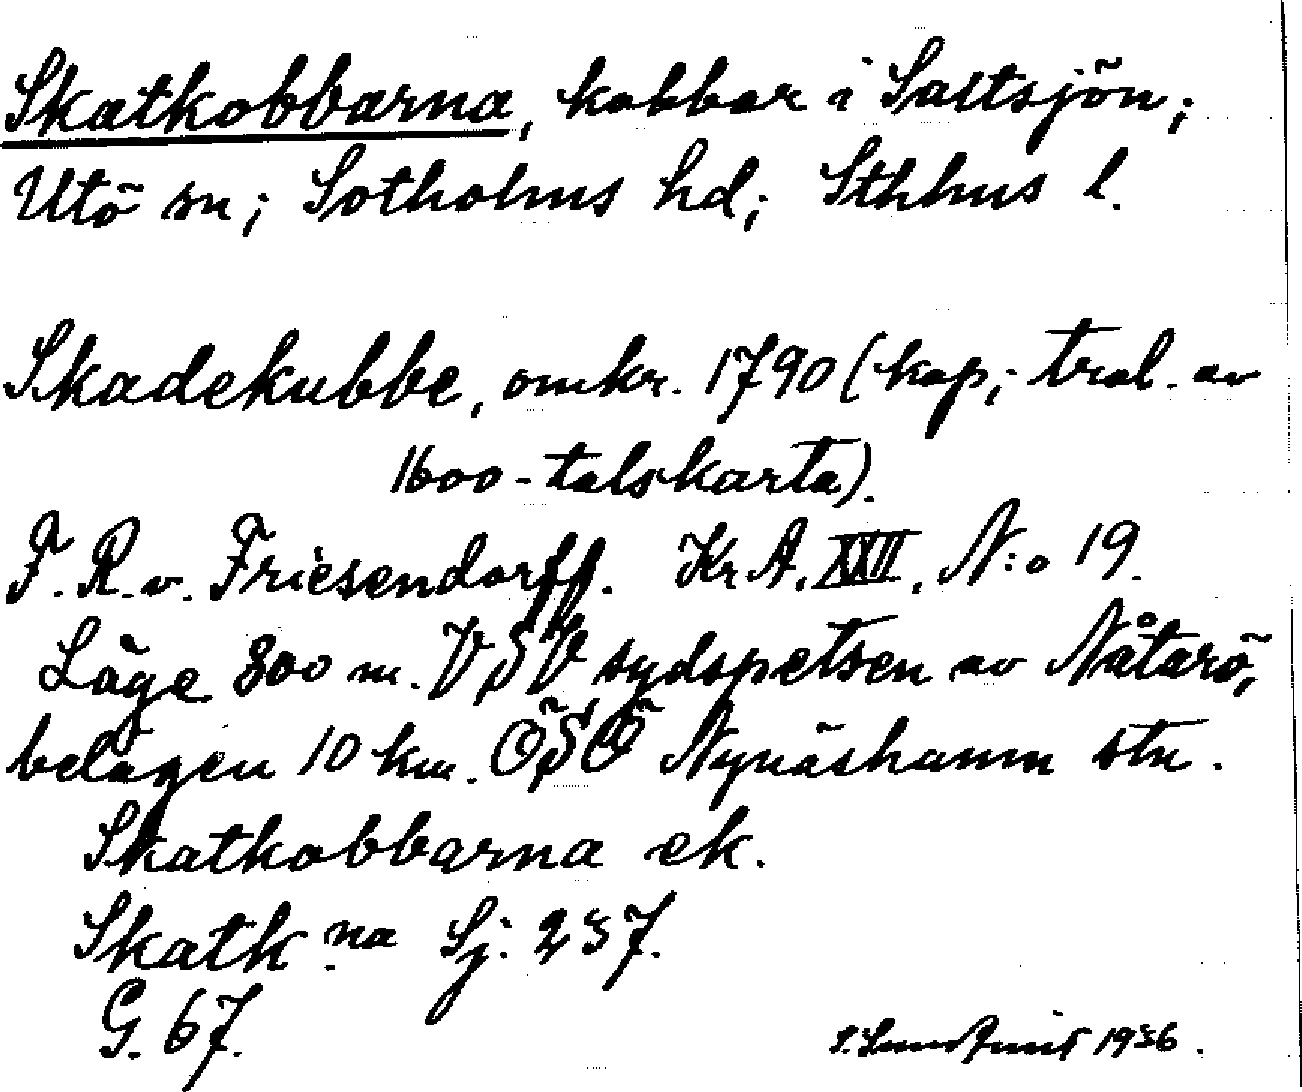 Skatkobbarna, kobbar i Saltsjön;
Utö sn; Sotholms hd; Sthlms l.
Skadekubbe, omkr. 1790 (kop; trol. av
1600-talskarta).
F. R. v. Friesendorff. Kr A. XXII, N:o 19.
Läge 800 m. VSV sydspetsen av Nåtarö,
belägen 10 km. ÖSÖ Nynäshamn stn.
Skatkobbarna ek.
Skatk:na Sj. 237.
G. 67.
1936.